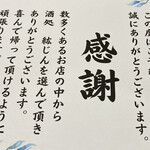 この度は
誠にありがとうございます。
感謝
数多くあるお店の中から
酒処 絃じんを選んで頂き
ありがとうございます。
喜んで帰って頂けるように